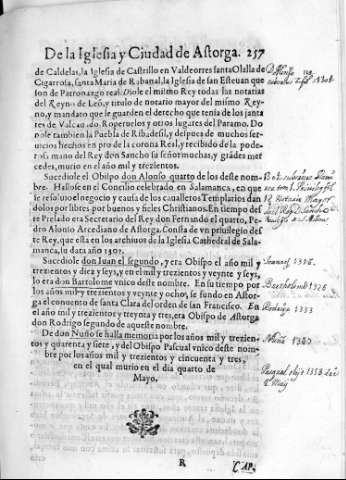 De la Iglesia y Ciudad de Astorga. 257
de Caldelas, la Iglesia de Castrillo en Valdeorres santa Olalla de
Cigarrosa, santa Maria de Rabanal, la Iglesia de san Esteuan que
son de Patronazgo real. Diole el mismo Rey todas las notarias
del Reyno de Leõ, y titulo de notario mayor del mismo Rey-
no, y mandato que le guarden el derecho que tenia de los janta
res de Valcauado. Roperuelos y otros lugares del Paramo. Do
nole tambien la Puebla de Ribadesil, y despues de muchos ser-
uicios hechos en pro de la corona Real, y recibido de la pode-
rosa mano del Rey don Sancho su señor muchas, y grãdes mer
cedes, murio en año mil y trezientos.
Sucediole el Obispo don Alonso quarto de los deste nom-
bre. Hallose en el Concilio celebrado en Salamanca, en que
se resoluio el negocio y causa de los caualleros Templarios dan
dolos por libres por buenos y fieles Christianos. En tiempo des
te Prelado era Secretario del Rey don Fernando el quarto, Pe-
dro Alonso Arcediano de Astorga. Consta de vn priuilegio des-
te Rey, que esta en los archiuos de la Iglesia Cathedral de Sala-
manca, su data año 1307.
Sucediole don Iuan el segundo, y era Obispo el año mil y
trezientos y diez y seys, y en el mil y trezientos y veynte y seys,
lo era don Bartolome vnico deste nombre. En su tiempo por
los años mil y trezientos y veynte y ocho, se fundo en Astor-
ga el conuento de santa Clara del orden de san Francisco. En
el año mil y trezientos y treynta y tres, era Obispo de Astorga
don Rodrigo segundo de aqueste nombre.
De don Nuño se halla memoria por los años mil y trezien-
tos y quarenta y siete, y del Obispo Pascual vnico deste nom-
bre por los años mil y trezientos y cincuenta y tres,
en el qual murio en el dia quarto de
Mayo.
Joannes 1316.
Bartholomé 1326
Rodrigo 1333
Nuño
Pasqual 1353
R
CAP.